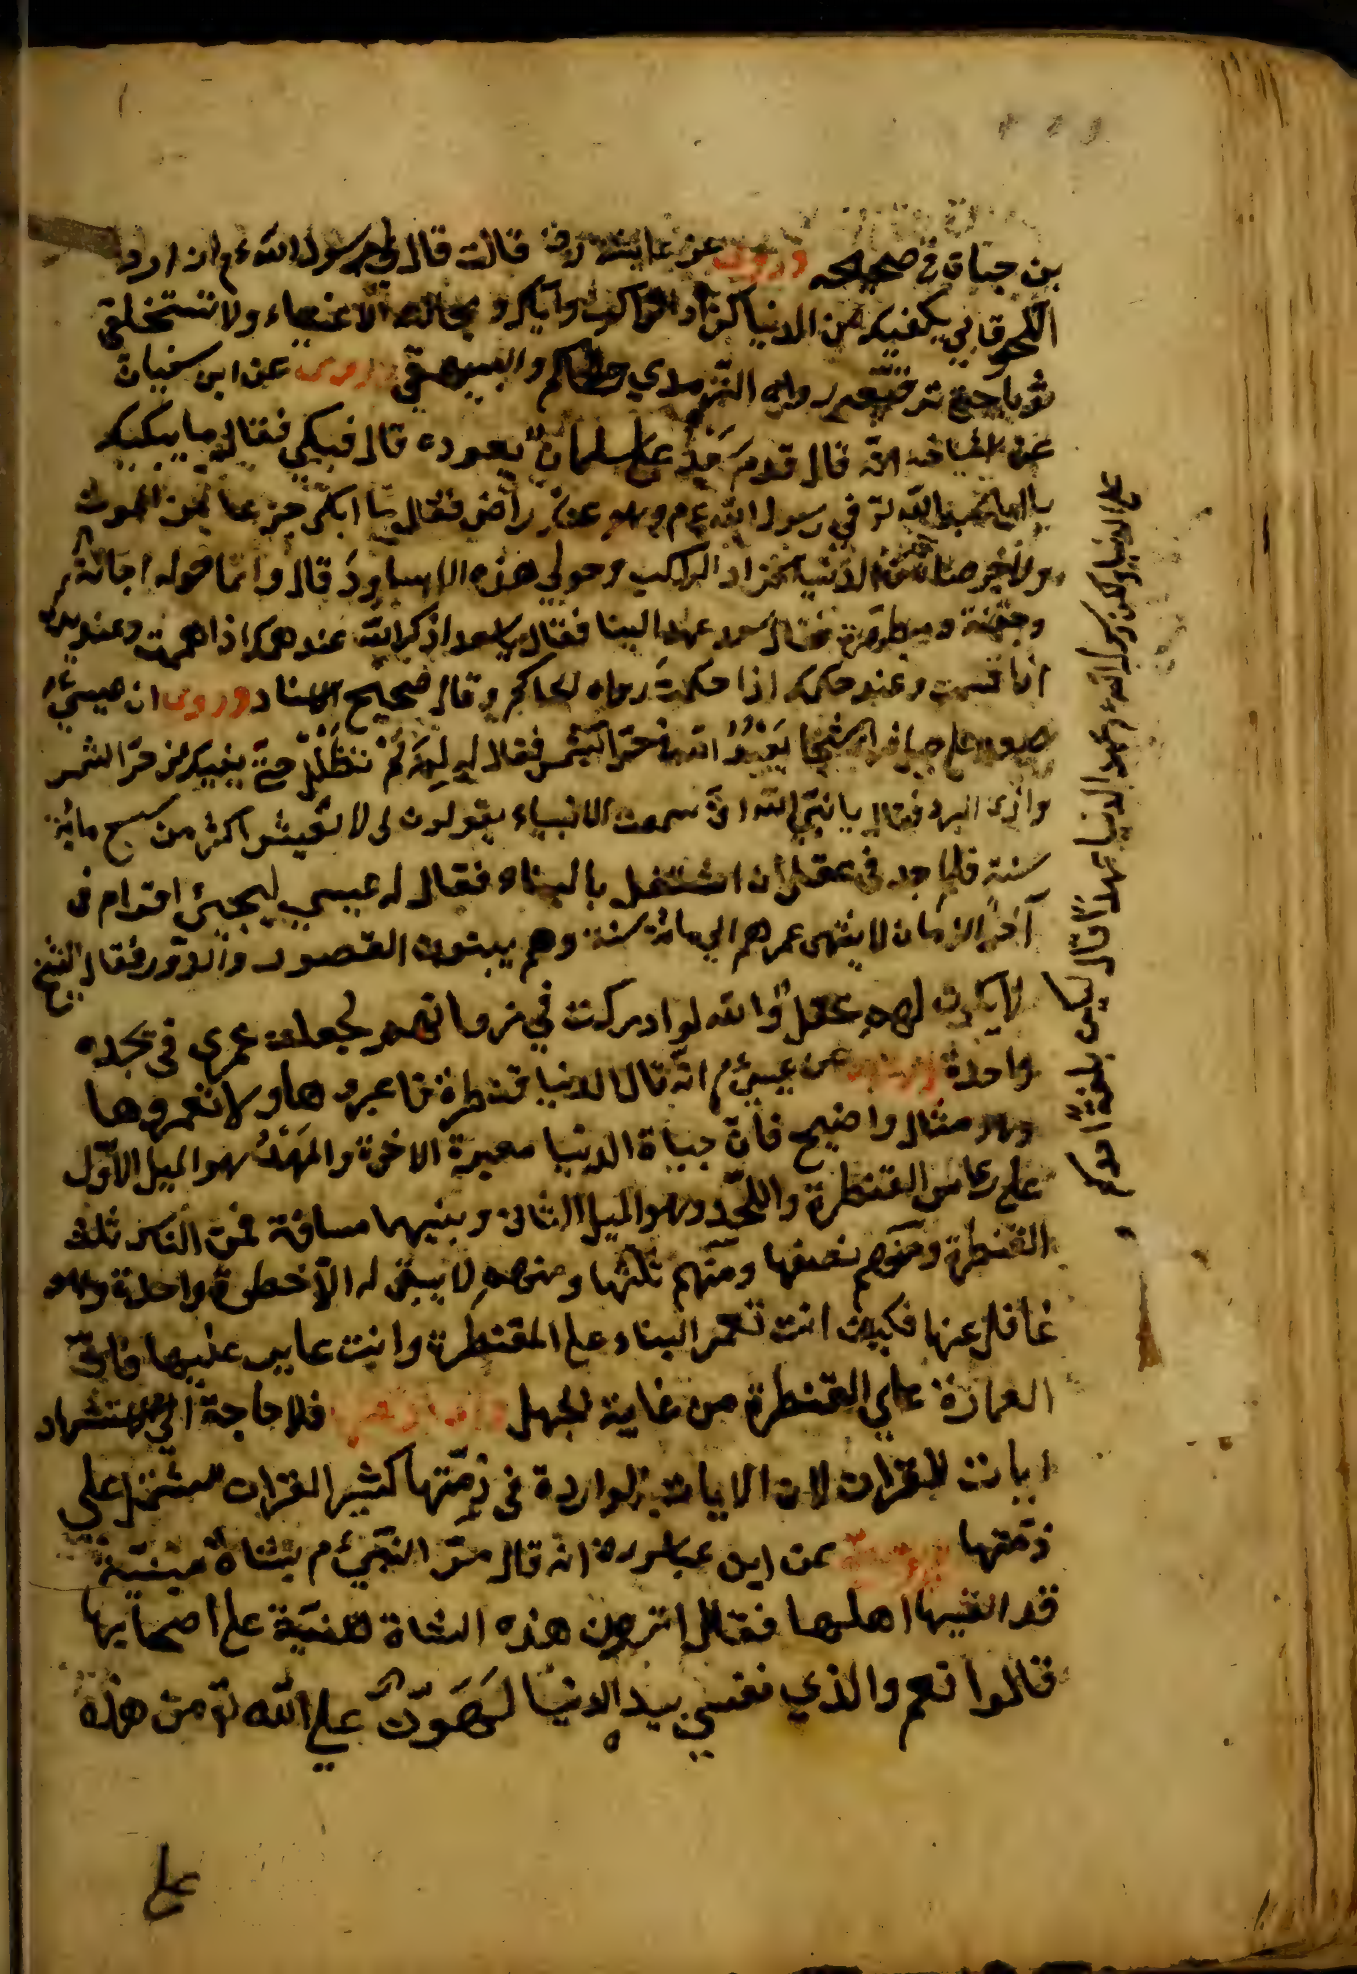 بن حبان في صحيحه وروى عن عايشة رض قالت قال لي رسول الله ءم ان اردت
اللحوق بي يكفيك من الدنيا كزاد الراكب واياك ومجالسة الاغنياء ولا تستخلقي
ثوبا حتى ترقعيه رواه الترمذي والحاكم والبيهقي وروى عن ابى سفيان
عن اشياخه انه قال قدم سعد على سلمان يعوده قال فبكى فقال ما يبكيك
يا ابا عبد الله توفي رسول الله ءم وهو عنك راض فقال ما ابكى جزعا من الموت
ولا حرصا على الدنيا كزاد الراكب وحولي هذه الاساود قال وانما حوله اجانة
وجفنة ومطهرة فقال سعد عهد الينا فقال يا سعد اذكر الله عند همك اذا هممت وعند يدك
اذا قسمت وعند حكمك اذا حكمت رواه الحاكم وقال صحيح الاسناد وروى ان عيسىءم
صعد على جبل فراى شيخا يعبد الله في حر الشمس فقال له لم لم تتظلل حتى يفيك من حر الشمس
واذى البرد فقال يا نبي الله انى سمعت الانبياء يقولون لى لا تعيش اكثر من سبع مائة
سنة فلم اجد في عقلى ان اشتغل بالبناء فقال له عيسى ليجيئ اقوام فى
آخر الزمان لا ينتهى عمرهم الى مائة سنة وهم يبنون القصور والدور فقال الشيخ
لا يكون لهم عقل والله لو ادركت في زمانهم لجعلت عمرى في سجدة
واحدة وروى عن عيسىءم انه قال الدنيا قنطرة فاعبروها ولا تعمروها
وهو مثال واضح فان حياة الدنيا معبرة الاخرة والمهد هو الميل الاول
على رأس القنطرة واللحد وهو الميل الثانى وبينهما مسافة فمن الناس ثلث
القنطرة ومنهم نصفها ومنهم ثلثها ومنهم لا يبقى له الا خطوة واحدة وهو
غافل عنها فكيف انت تعمر البناء على القنطرة وانت عابر عليها فان
العمارة على القنطرة من غاية الجهل فلا حاجة الى الاستشهاد
ايات القران لان الايات الواردة فى ذمتها كثير القران مشتمل على
ذمتها عن ابن عباس رض انه قال مر النبىءم بشاة ميتة
قد القيها اهلها فقال اترون هذه الشاة هنية على اصحابها
قالوا نعم والذي نفسي بيده الدنيا لهون على الله تع من هذه
على
على الدنيا ولكن رسول الله ءم عهد الينا عهدا قال ليكن بلغة احدكم